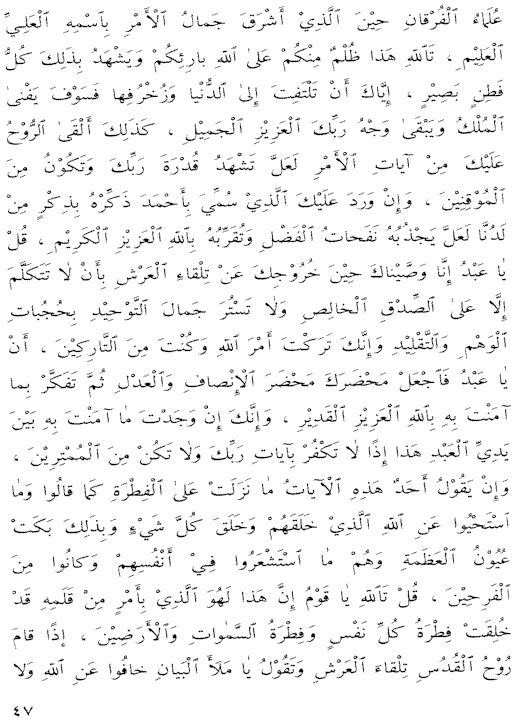 عُلَمَاءُ ٱلْفُرْقَانِ حِيْنَ ٱلَّذِيْ أَشْرَقَ جَمَالُ ٱلْأَمْرِ بِٱسْمِهِ ٱلْعَلِيِّ
ٱلْعَلِيْمِ ، تَٱللهِ هَذا ظُلْمٌ مِنْكُمْ عَلىٰ ٱللهِ بارِئِكُمْ وَيَشْهَدُ بِذَلِكَ كُلُّ
فَطِنٍ بَصِيْرٍ ، إِيَّاكَ أَنْ تَلْتَفِتَ إِلىٰ ٱلدُّنْيا وَزُخْرُفِها فَسَوْفَ يَفْنىٰ
ٱلْمُلْكُ وَيَبْقىٰ وَجْهُ رَبِّكَ ٱلْعَزِيْزِ ٱلْجَمِيْلِ ، كَذَلِكَ أَلْقىٰ ٱلرُّوْحُ
عَلَيْكَ مِنْ آياتِ ٱلْأَمْرِ لَعَلَّ تَشْهَدُ قُدْرَةَ رَبِّكَ وَتَكُوْنُ مِنَ
ٱلْمُوْقِنِيْنَ ، وَإِنْ وَرَدَ عَلَيْكَ ٱلَّذِيْ سُمِّيَ بِأَحْمَدَ ذَكِّرْهُ بِذِكْرٍ مِنْ
لَدُنَّا لَعَلَّ يَجْذُبُهُ نَفَحَاتُ ٱلْفَضْلِ وَتُقَرِّبُهُ بِٱللهِ ٱلْعَزِيْزِ ٱلْكَرِيْمِ ، قُلْ
يا عَبْدُ إِنَّا وَصَّيْناكَ حِيْنَ خُرُوْجِكَ عَنْ تِلْقاءِ ٱلْعَرْشِ بِأَنْ لا تَتَكَلَّمَ
إِلَّا عَلىٰ ٱلصِّدْقِ ٱلْخالِصِ وَلا تَسْتُرَ جَمالَ ٱلتَّوْحِيْدِ بِحُجُباتِ
ٱلْوَهْمِ وَٱلتَّقْلِيْدِ وَإِنَّكَ تَرَكْتَ أَمْرَ ٱللهِ وَكُنْتَ مِنَ ٱلتَّارِكِيْنَ ، أَنْ
يا عَبْدُ فَٱجْعَلْ مَحْضَرَكَ مَحْضَرَ ٱلْإِنْصافِ وَٱلْعَدْلِ ثُمَّ تَفَكَّرْ بِما
آمَنْتَ بِهِ بِٱللهِ ٱلْعَزِيْزِ ٱلْقَدِيْرِ ، وَإِنَّكَ إِنْ وَجَدْتَ ما آمَنْتَ بِهِ بَيْنَ
يَدِيِّ ٱلْعَبْدِ هَذا إِذًا لا تَكْفُرْ بِآياتِ رَبِّكَ وَلا تَكُنْ مِنَ ٱلْمُمْتِرِيْنَ ،
وَإِنْ يَقُوْلُ أَحَدٌ هَذِهِ ٱلْآياتُ ما نَزَلَتْ عَلىٰ ٱلْفِطْرَةِ كَما قالُوا وَما
ٱسْتَحْيُوا عَنِ ٱللهِ ٱلَّذِيْ خَلَقَهُمْ وَخَلَقَ كُلَّ شَيْءٍ وَبِذَلِكَ بَكَتْ
عُيُوْنُ ٱلْعَظَمَةِ وَهُمْ ما ٱسْتَشْعَرُوا فِيْ أَنْفُسِهِمْ وَكانُوا مِنَ
ٱلْفَرِحِيْنَ ، قُلْ تَٱللهِ يا قَوْمُ إِنَّ هَذا لَهُوَ ٱلَّذِيْ بِأَمْرٍ مِنْ قَلَمِهِ قَدْ
خُلِقَتْ فِطْرَةُ كُلِّ نَفْسٍ وَفِطْرَةُ ٱلسَّمٰواتِ وَٱلْأَرَضِيْنَ ، إِذًا قامَ
رُوْحُ ٱلْقُدُسِ تِلْقاءَ ٱلْعَرْشِ وَتَقُوْلُ يا مَلَأَ ٱلْبَيانِ خافُوا عَنِ ٱللهِ وَلا
٤٧